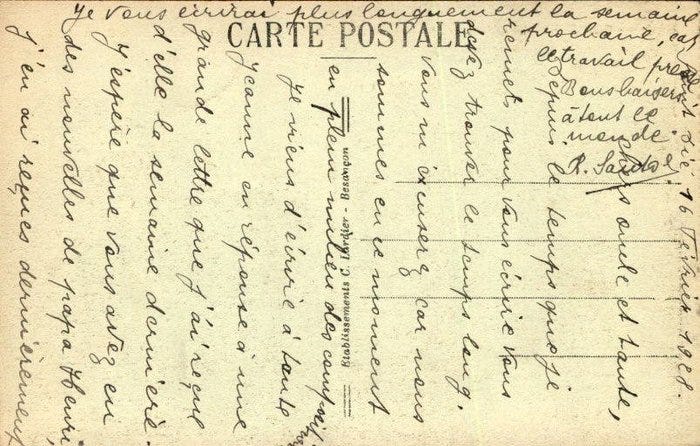 CARTE POSTALE
le 16 Février 1921.
Chers oncle et tante,
Depuis le temps que je
remets pour vous écrire vous
devez trouver le temps long,
vous m'excuserez car nous
sommes en ce moment
en plein milieu des compositions
Je viens d'écrire à tante
Jeanne en réponse à une
grande lettre que j'ai reçue
d'elle la semaine dernière.
J'espère que vous avez eu
des nouvelles de papa Henri,
j'en ai reçues dernièrement
Je vous écrirai plus longuement la semaine
prochaine, car
le travail presse
Bons baisers
à tout le
monde
R.
Etablissements C. Lardier - Besançon